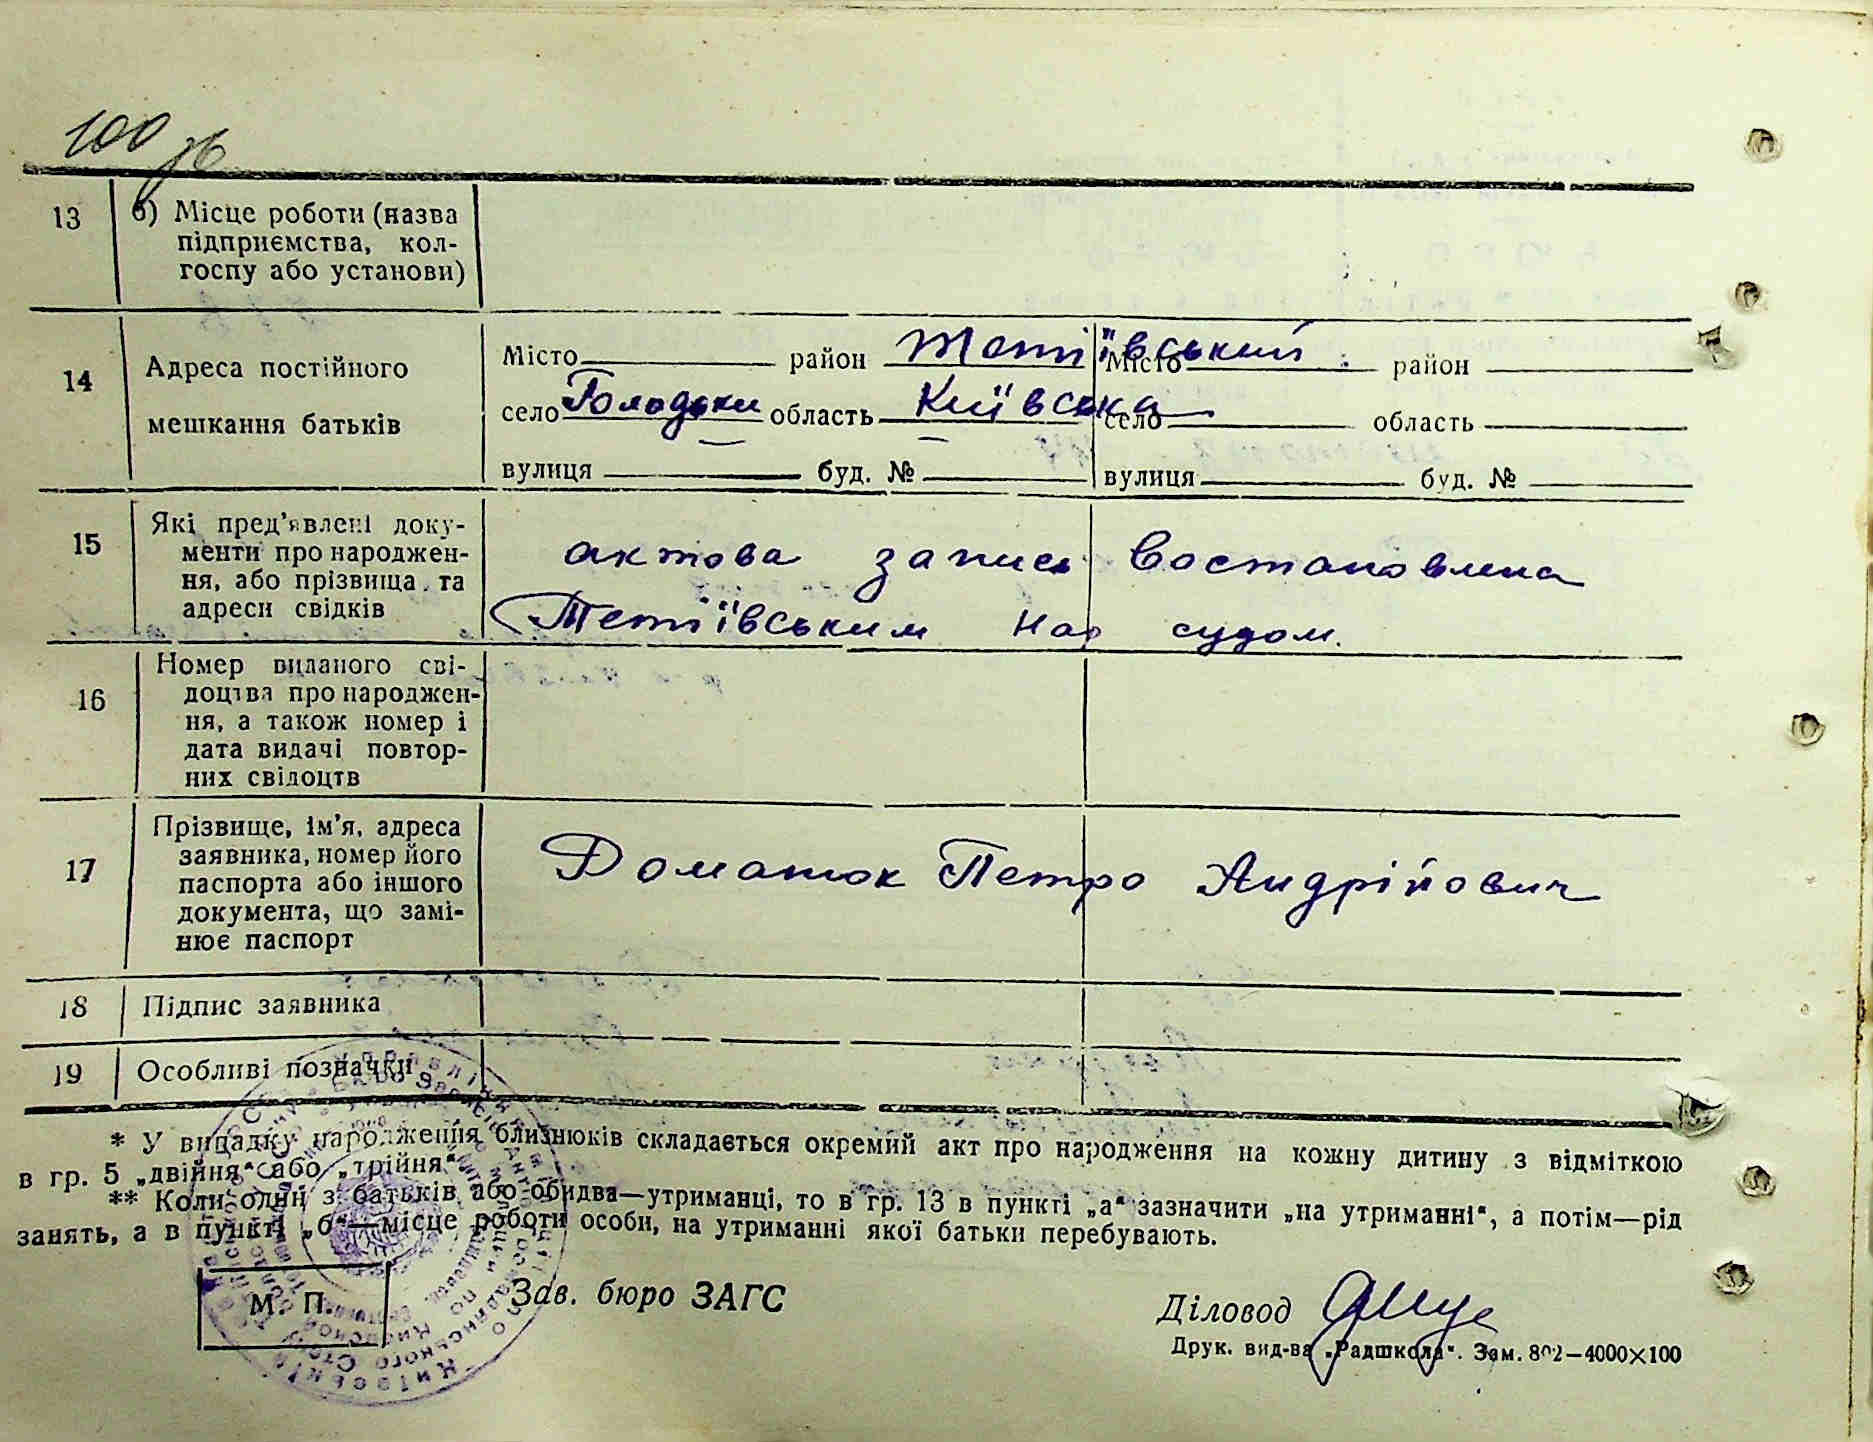 100 зв
13 б) Місце роботи (назва
підприємства, кол-
госпу або установи)
14 Адреса постійного
мешкання батьків
Місто район Тетіївський Місто район
село Голодьки область Київська село область
вулиця буд. № вулиця буд. №
15 Які пред'явлені доку-
менти про народжен-
ня, або прізвища та
адреси свідків
актова запись востановлена
Тетіївським нар судом.
16 Номер виданого сві-
доцтва про народжен-
ня, а також номер і
дата видачі повтор-
них свідоцтв
17 Прізвище, ім'я, адреса
заявника, номер його
паспорта або іншого
документа, що замі-
нює паспорт
Доматюк Петро Андрійович
18 Підпис заявника
19 Особливі позначки
* У випадку народження близнюків складається окремий акт про народження на кожну дитину з відміткою
в гр. 5 „двійня“ або „трійня“.
** Коли один з батьків або обидва—утриманці, то в гр. 13 в пункті „а“ зазначити „на утриманні“, а потім—рід
занять, а в пункті „б“—місце роботи особи, на утриманні якої батьки перебувають.
М. П.
Зав. бюро ЗАГС
Діловод
Друк. вид-ва „Радшкола“. Зам. 802—4000×100